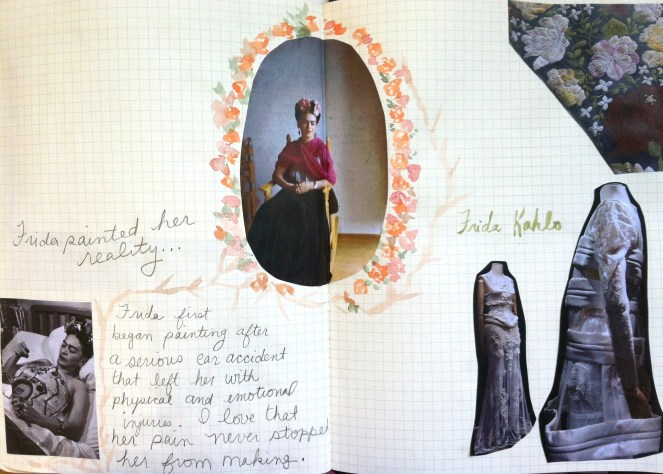 Frida painted her
reality...
Frida Kahlo
Frida first
began painting after
a serious car accident
that left her with
physical and emotional
injuries. I love that
her pain never stopped
her from making.